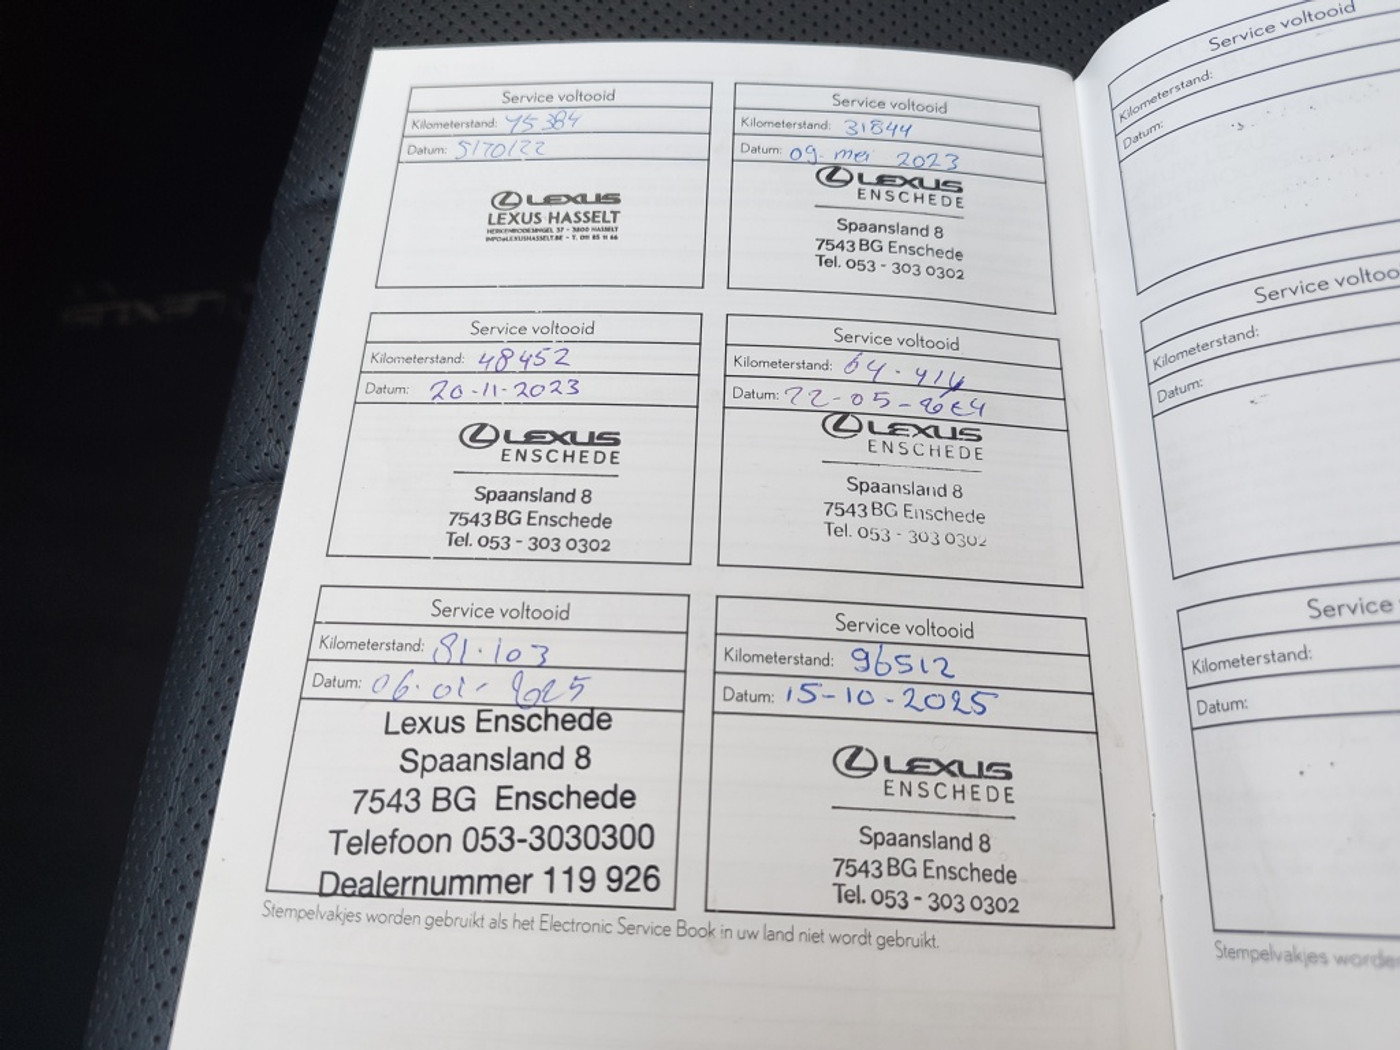 Service voltooid
Kilometerstand: 15384
Datum: 5/10/22
LEXUS
LEXUS HASSELT
HERKENRODESINGEL 37 - 3500 HASSELT
INFO@LEXUSHASSELT.BE - T. 011 85 11 66
Service voltooid
Kilometerstand: 31844
Datum: 09 mei 2023
LEXUS
ENSCHEDE
Spaansland 8
7543 BG Enschede
Tel. 053 - 303 0302
Service voltooid
Kilometerstand: 48452
Datum: 20-11-2023
LEXUS
ENSCHEDE
Spaansland 8
7543 BG Enschede
Tel. 053 - 303 0302
Service voltooid
Kilometerstand: 64.414
Datum: 22-05-2024
LEXUS
ENSCHEDE
Spaansland 8
7543 BG Enschede
Tel. 053 - 303 0302
Service voltooid
Kilometerstand: 81.103
Datum: 06.01-2025
Lexus Enschede
Spaansland 8
7543 BG Enschede
Telefoon 053-3030300
Dealernummer 119 926
Service voltooid
Kilometerstand: 96512
Datum: 15-10-2025
LEXUS
ENSCHEDE
Spaansland 8
7543 BG Enschede
Tel. 053 - 303 0302
Stempelvakjes worden gebruikt als het Electronic Service Book in uw land niet wordt gebruikt.
Service voltooid
Kilometerstand:
Datum:
Service voltoo
Kilometerstand:
Datum:
Service
Kilometerstand:
Datum:
Stempelvakjes worde